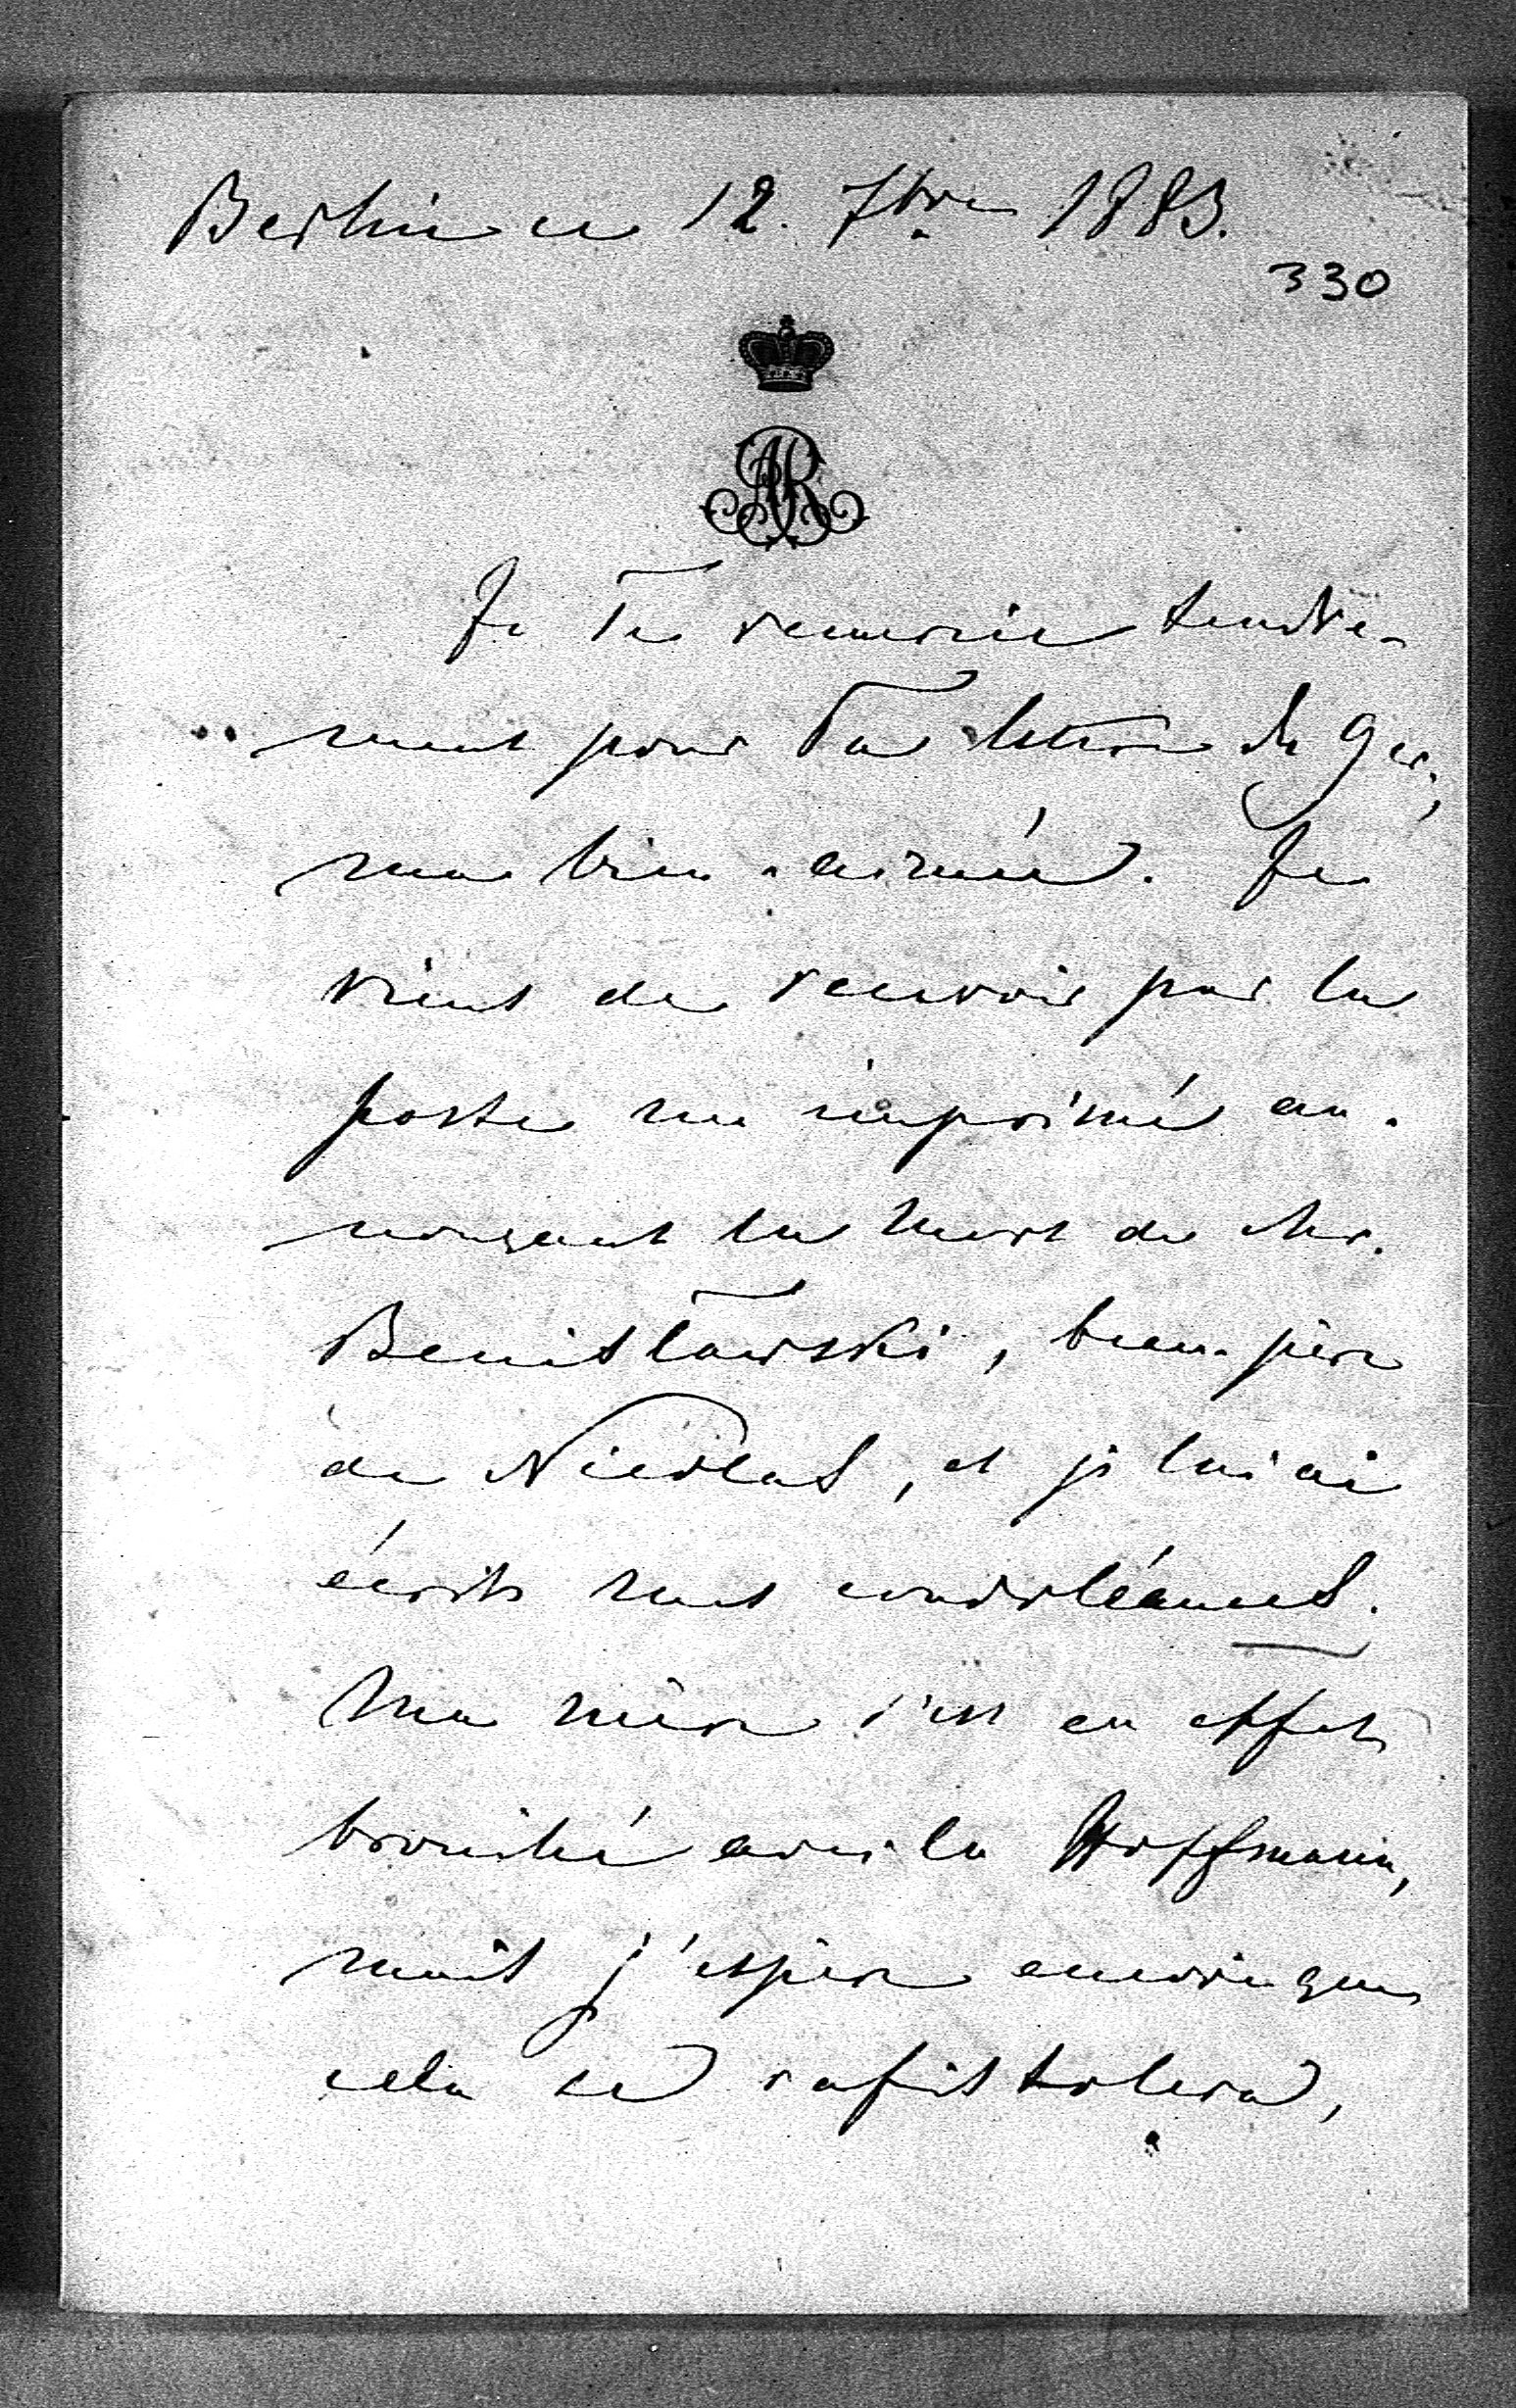 Berlin ce 12. 7bre 1883.
330
AR
Je Te remercie tendre-
ment pour Ta lettre du 9 cr.,
ma bien-aimée. Je
viens de recevoir par la
poste un imprimé an-
nonçant la mort de Mr.
Benisławski, beau-père
de Nicolas, et je lui ai
écrit mes condoléances.
Ma mère s'est en effet
brouillé avec la Hoffmann,
mais j'espère encore que
cela se rafistolera,